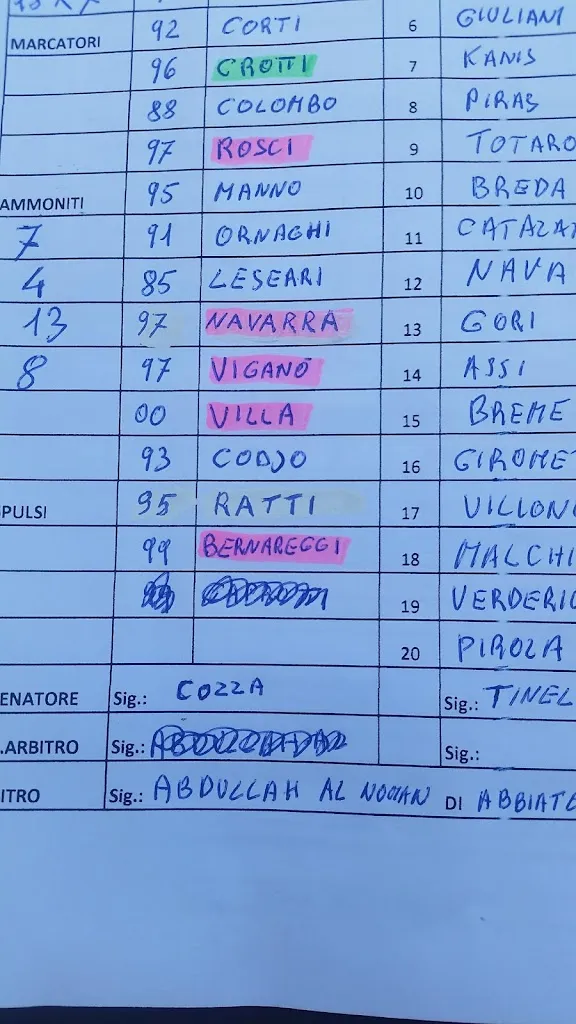 92 CORTI 6 GIULIANI
MARCATORI
96 CROTTI 7 KANIS
88 COLOMBO 8 PIRAS
97 ROSCI 9 TOTARO
AMMONITI 95 MANNO 10 BREDA
7 91 ORNAGHI 11 CATAZA
4 85 LESEARI 12 NAVA
13 97 NAVARRA 13 GORI
8 97 VIGANÒ 14 ASSI
00 VILLA 15 BREME
93 CODJO 16 GIROME
PULSI 95 RATTI 17 VILLON
99 BERNAREGGI 18 MALCHI
19 VERDERIO
20 PIROZA
ENATORE Sig.: COZZA Sig.: TINEL
.ARBITRO Sig.: Sig.:
ITRO Sig.: ABDULLAH AL NOMAN DI ABBIATE